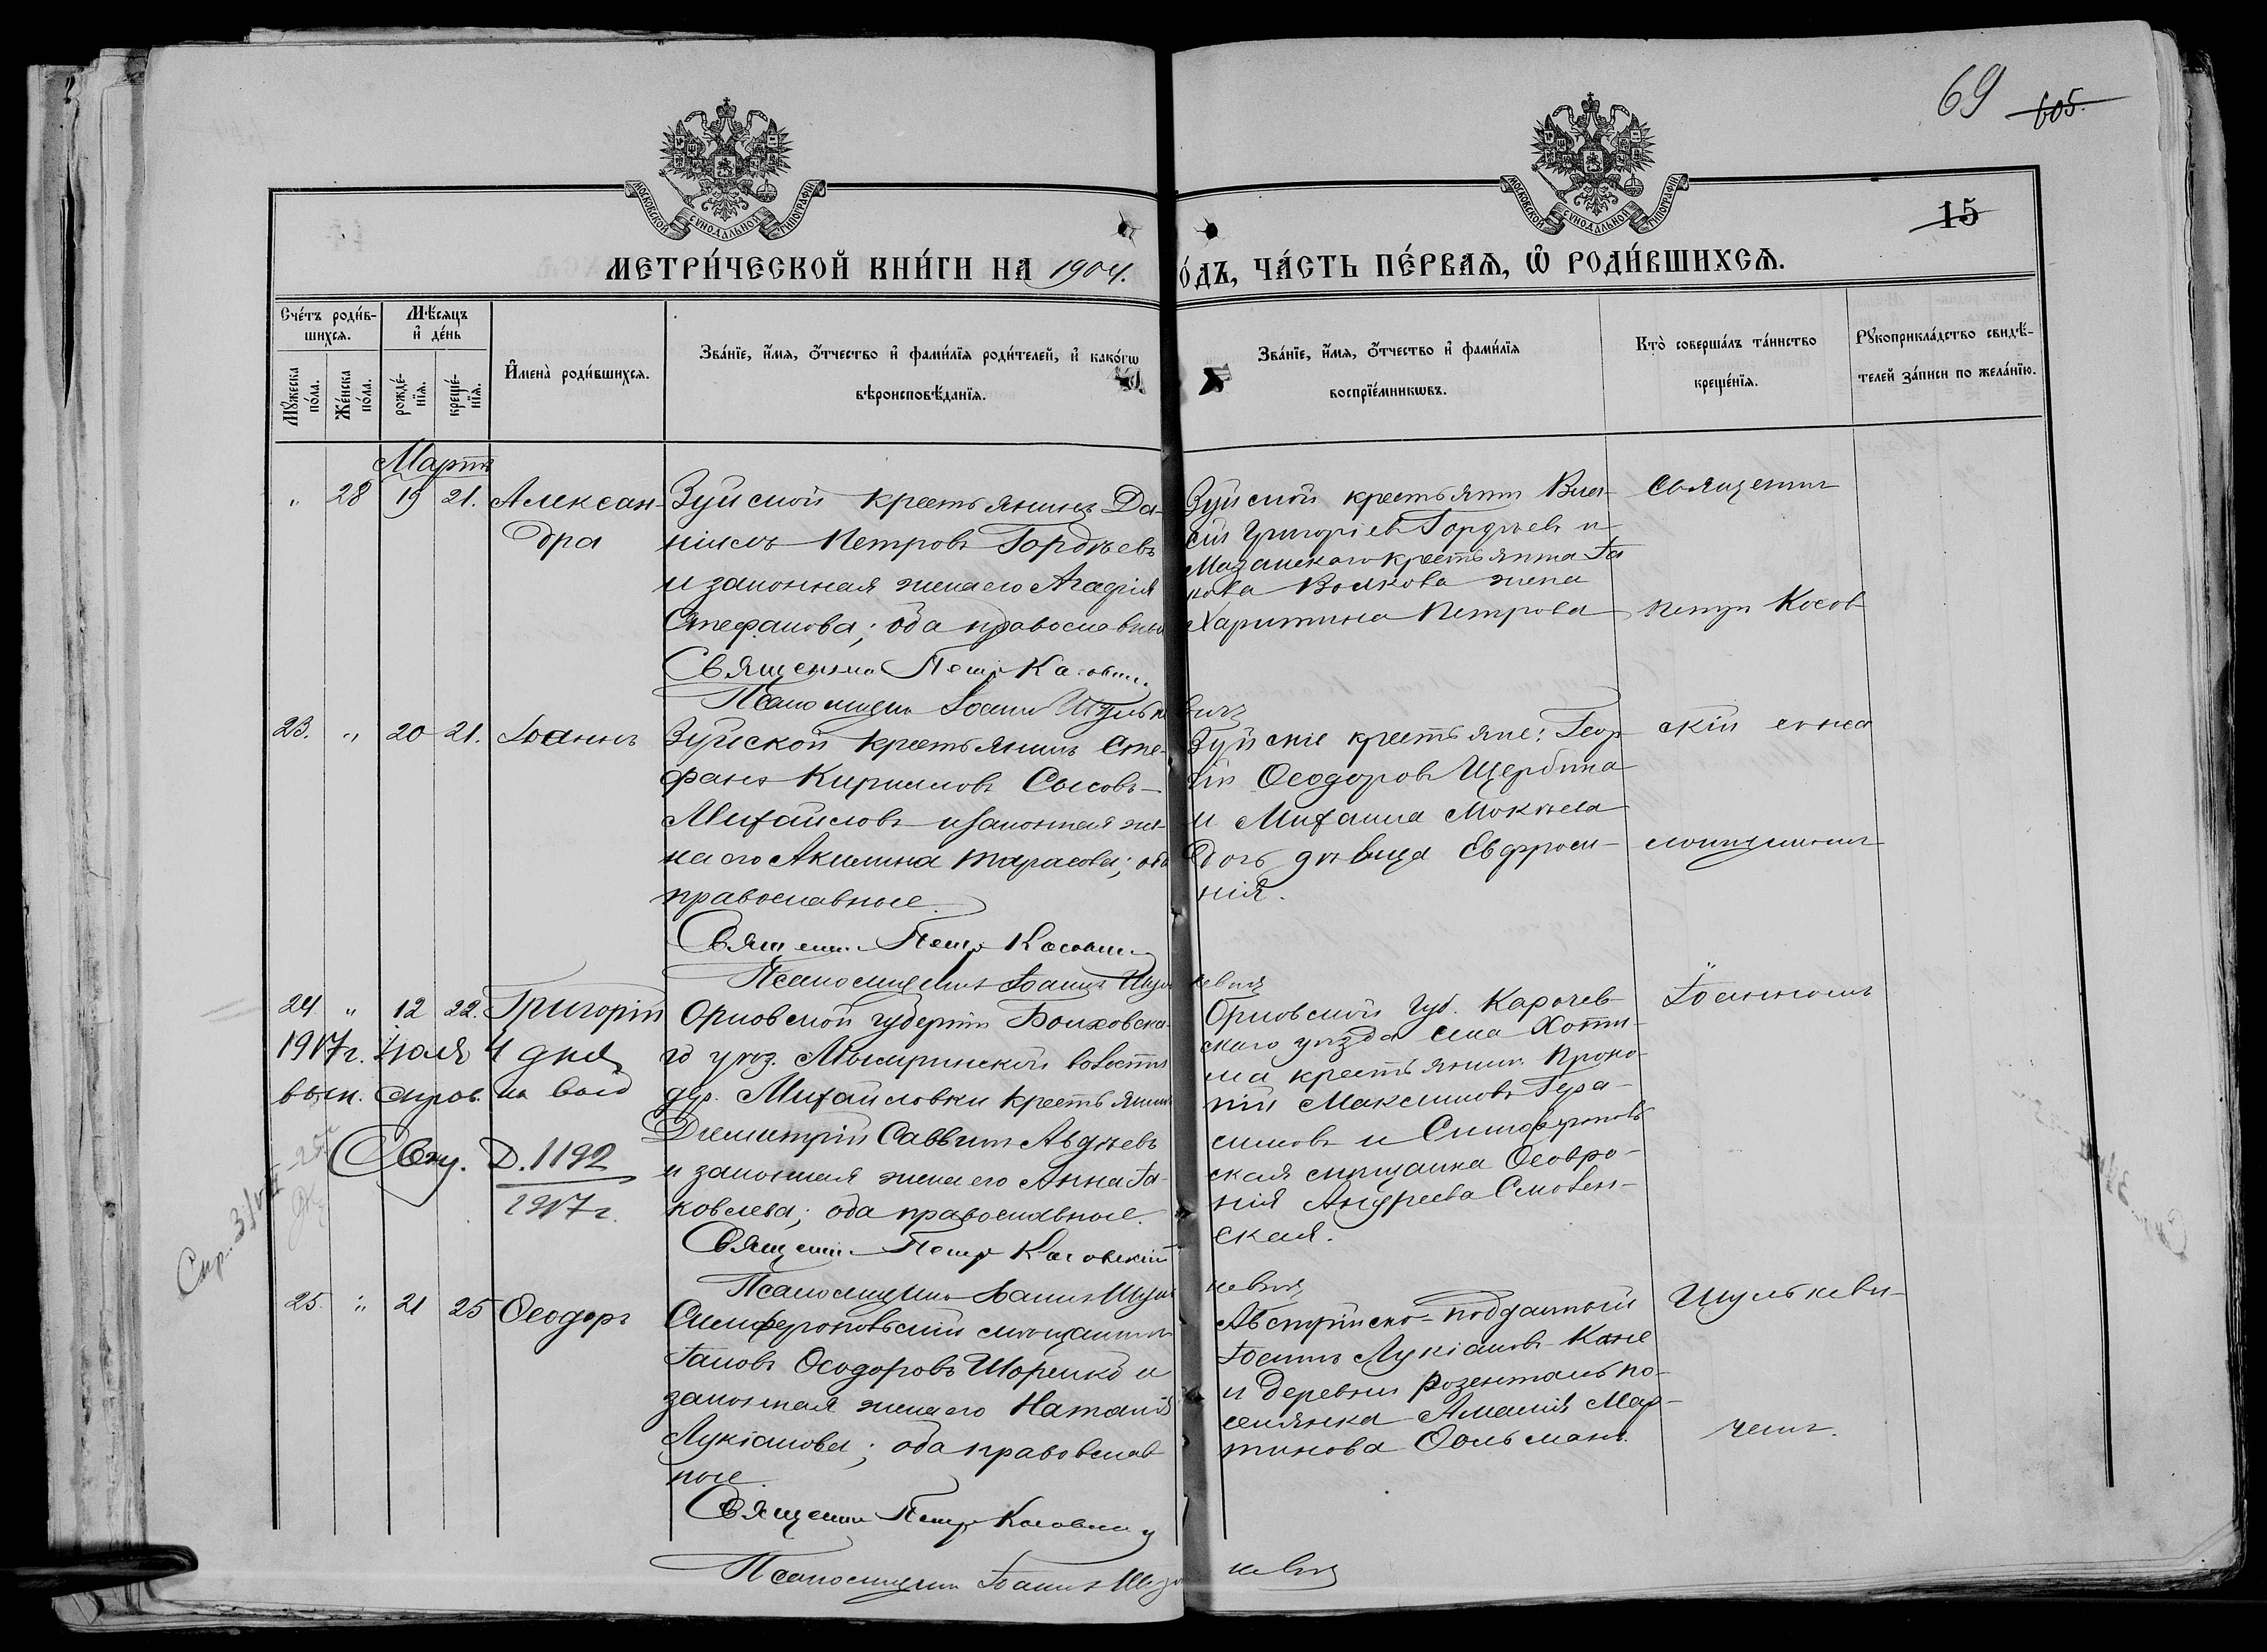 69 605.
МОСКОВСКОЙ СѴНОДАЛЬНОЙ ТИПОГРАФІИ
МОСКОВСКОЙ СѴНОДАЛЬНОЙ ТИПОГРАФІИ
15
МЕТРИ́ЧЕСКОЙ КНИ́ГИ НА 1904.
О́ДЪ, ЧА́СТЬ ПЕ́РВАѦ, Ѡ҆ РОДИ́ВШИХСѦ.
Сче́тъ роди́в-
шихсѧ.
Мꙋ́жеска по́ла.
Же́нска по́ла.
Мѣ́сѧцъ
и҆ де́нь
рожде́-
нїѧ.
креще́-
нїѧ.
И҆мена̀ роди́вшихсѧ.
Зва́нїе, и҆́мѧ, ѻ҆́тчество и҆ фами́лїѧ роди́телей, и҆ како́гѡ
вѣроисповѣ́данїѧ.
Зва́нїе, и҆́мѧ, ѻ҆́тчество и҆ фами́лїѧ
воспрїе́мникѡвъ.
Кто̀ соверша́лъ та́инство
креще́нїѧ.
Рꙋкоприкла́дство свидѣ́-
телей за́писи по жела́нїю.
Мартъ
" 28 19 21. Алексан-
дра
Зуйской крестьянинъ Да-
ніилъ Петровъ Гордѣевъ
и законная жена его Агафія
Стефанова; оба православные
Священникъ Петръ Касовскій
Псаломщикъ Іоаннъ Шульке
Зуйской крестьянин Васи-
сій Григоріевъ Гордѣевъ и
Мазанскаго крестьянина Іа
кова Волкова жена
Харитина Петрова
вичъ
Священник
Петръ Косов
23. " 20 21. Іоаннъ
Зуйской крестьянинъ Сте-
фанъ Кирилловъ Сысовъ-
Михайловъ и законная же-
на его Акилина Тарасова; оба
православные.
Священ. Петръ Косовскій
Псаломщикъ Іоаннъ Шуль
Зуйскіе крестьяне: Геор-
гій Ѳеодоровъ Щербина
и Михаила Мокѣева
дочь дѣвица Евфроси-
нія.
кевичъ
скій съ пса
ломщикомъ
24. " 12 22. Григорій
1917 г. Іюля 4 дня
вып. справ. на вой
Свид. Д. 1192
1917 г.
Орловской губерніи Болховска-
го уѣз. Мымринской волости
дер. Михайловки крестьянинъ
Димитрій Саввинъ Авдѣевъ
и законная жена его Анна Іа-
ковлева; оба православные.
Священ. Петръ Касовскій
Псаломщикъ Іоаннъ Шуль
Орловской губ. Карачев-
скаго уѣзда села Хоти-
ма крестьянин. Проко-
пій Максимовъ Гера-
симовъ и Симферополь
ская мѣщанка Ѳевро-
нія Андреева Смолен-
ская.
кевичъ
Іоанномъ
25. " 21 25 Ѳеодоръ
Симферопольскій мѣщанинъ
Іаковъ Ѳеодоровъ Шоренко и
законная жена его Наталія
Лукіанова; оба православ
ные
Священник Петръ Косовскій
Псаломщикъ Іоаннъ Шуль
Австрійско-подданный
Іосифъ Лукіановъ Кане
и деревни Розенталь по-
селянка Амалія Мар-
тинова Фольманъ.
кевичъ
Шулькеви-
чемъ.